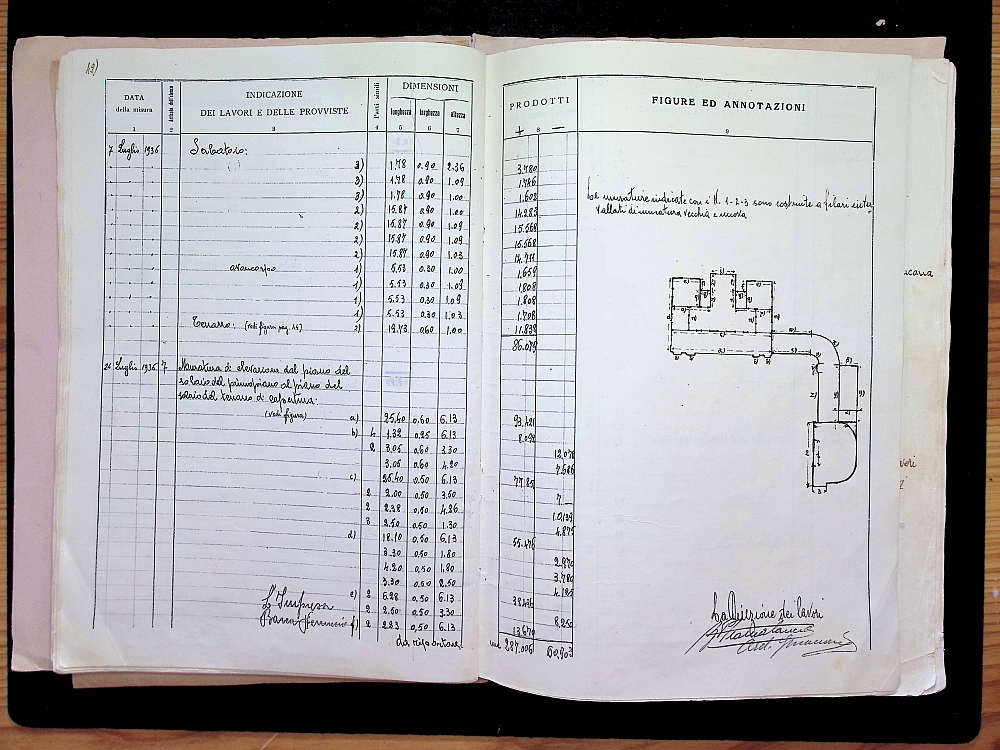 42)
DATA
della misura
INDICAZIONE
DEI LAVORI E DELLE PROVVISTE
Parti simili
DIMENSIONI
lunghezza larghezza altezza
PRODOTTI
+ —
FIGURE ED ANNOTAZIONI
1 2 3 4 5 6 7 8 9
7 Luglio 1936 Serbatoio:
3) 1.78 0.90 2.36 3.780
3) 1.78 0.90 1.09 1.746
3) 1.78 0.90 1.00 1.602
2) 15.87 0.90 1.00 14.283
2) 15.87 0.90 1.09 15.568
2) 15.87 0.90 1.09 15.568
2) 15.87 0.90 1.03 14.711
avancorpo 1) 5.53 0.30 1.00 1.659
1) 5.53 0.30 1.09 1.808
1) 5.53 0.30 1.09 1.808
1) 5.53 0.30 1.03 1.708
Terrazzo: (vedi figura pag. 45) 2) 19.73 0,60 1.00 11.838
86.079
Le murature indicate con i N. 1-2-3 sono costruite a filari inter
vallati di muratura vecchia e nuova
21 Luglio 1936 7 Muratura di elevazione dal piano del
solaio del primo piano al piano del
solaio del terrazzo di copertura:
(vedi figura)
a) 25.40 0.60 6.13 93.421
b) 4 1.32 0.25 6.13 8.092
2 3.05 0.60 3.30 12.078
3.05 0.60 4.20 7.686
c) 25.40 0.50 6.13 77.851
2 2.00 0.50 3.50 7.—
2 2.38 0.50 4.26 10.139
3 2.50 0.50 1.30 4.875
d) 18.10 0.50 6.13 55.476
3.30 0.50 1.80 2.970
4.20 0.50 1.80 3.780
3.30 0.50 2.50 4.125
e) 2 6.28 0.50 6.13
2 2.50 0.50 3.30 8.250
f) 2 2.23 0,50 6.13 13.670
da riportarsi mc 287.006 60.903
L'Impresa
La Direzione dei lavori